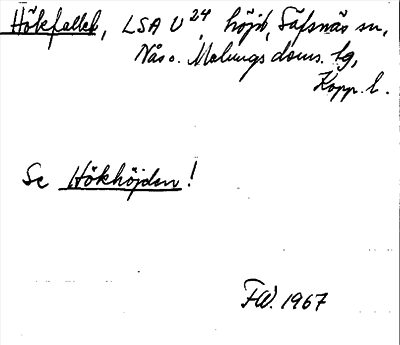 Hökfallet, LSA U24, höjd, Säfsnäs sn,
Nås o. Malungs doms. tg,
Kopp. l.
Se Hökhöjden!
FW. 1967